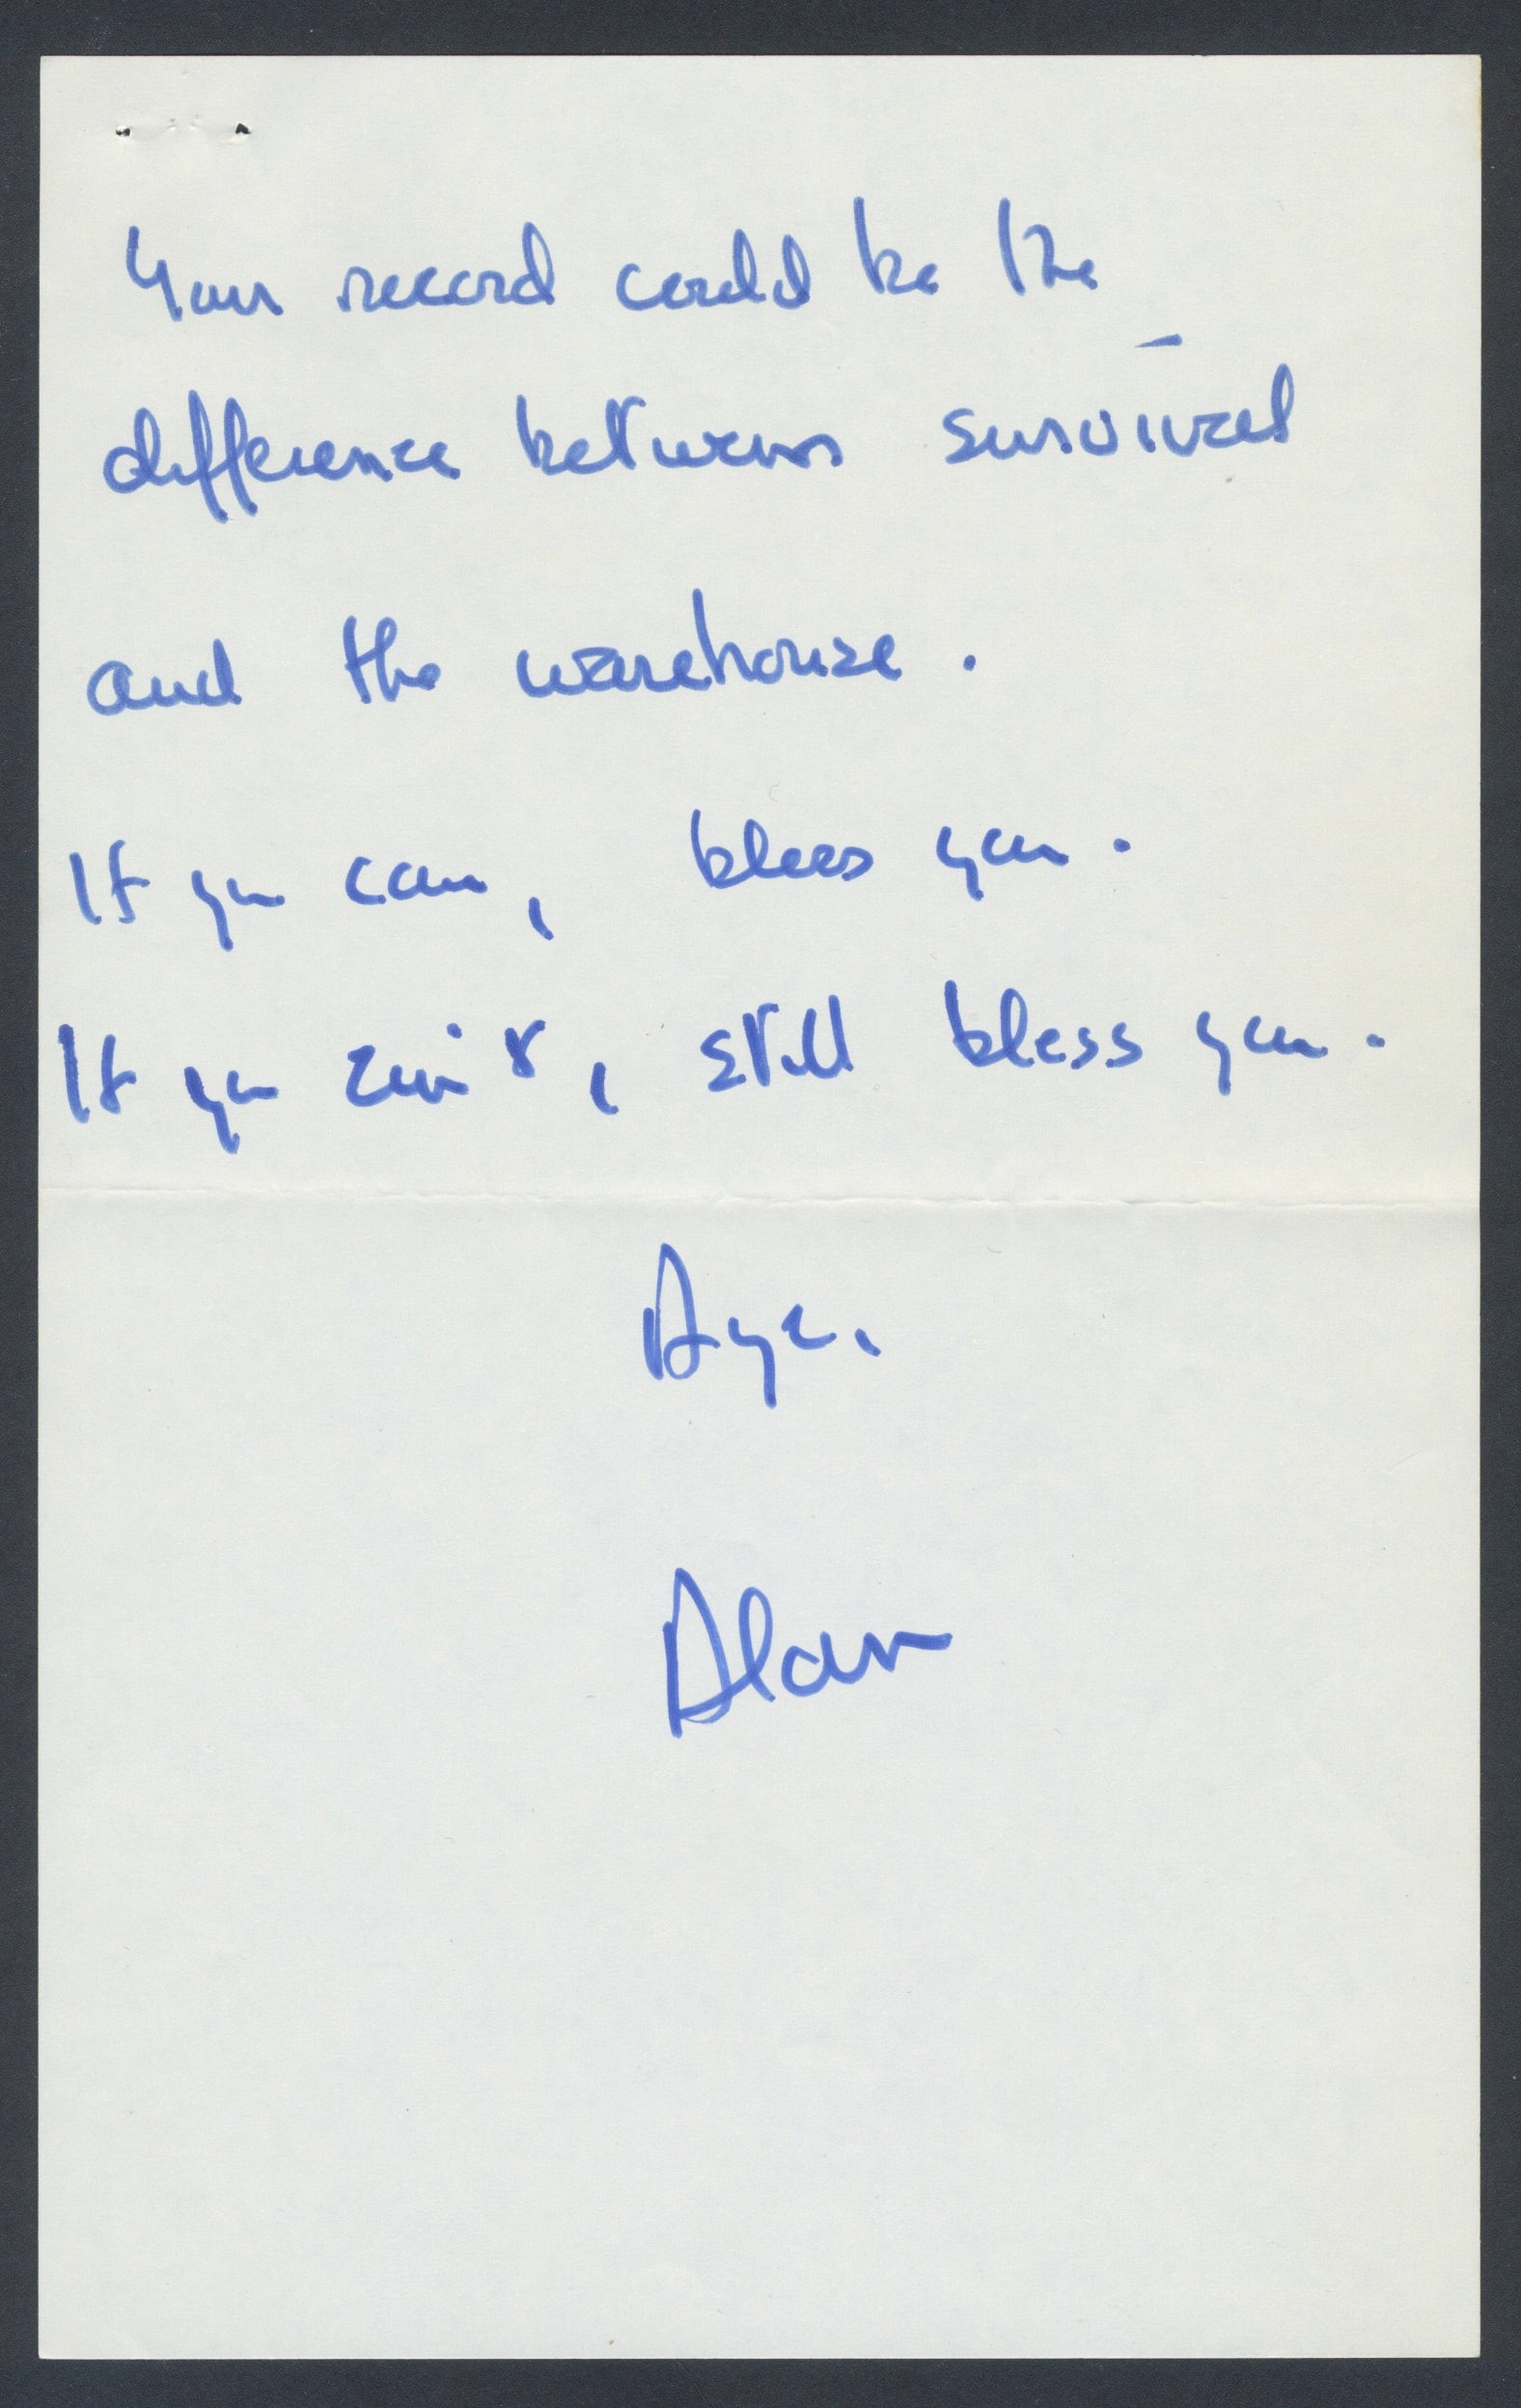 Your record could be the
difference between survival
and the warehouse.
If you can, bless you.
If you can't, still bless you.
Aye,
Alan